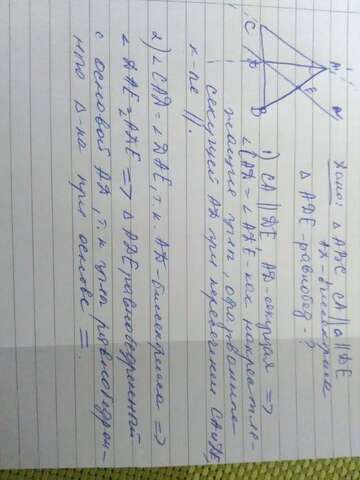 C A
D E
B
Дано: Δ ABC CA || DE
AD - биссектриса
Δ ADE - равнобед - ?
1) CA || DE AD - секущая =>
∠CAD = ∠ADE - как накрест ле-
жащие углы, образованные
секущей AD при пересечении CA и DE,
к-ые ||.
2) ∠CAD = ∠DAE, т.к. AD - биссектриса =>
∠DAE = ∠ADE => Δ ADE равнобедренный
с основой AD, т.к. углы равнобедрен-
ного Δ-ка при основе =.